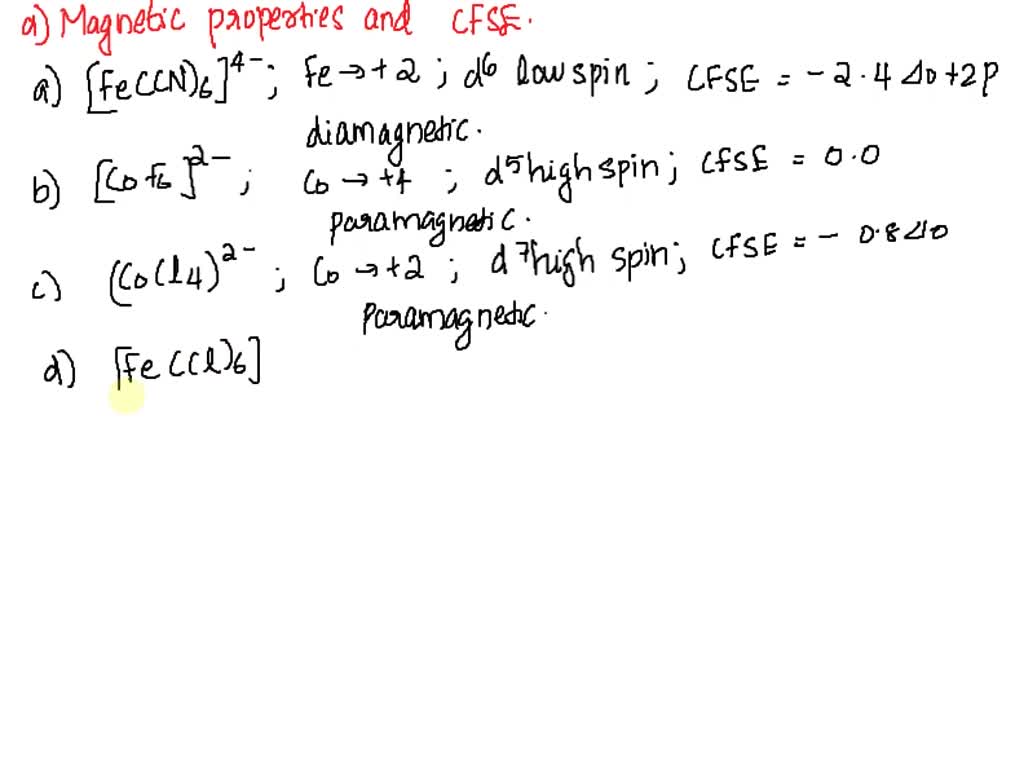 a) Magnetic properties and CFSE.
a) [Fe(CN)6]4-; Fe→+2; d6 low spin; CFSE = -2.4Δo+2P
diamagnetic.
b) [CoF6]2-; Co→+4; d5 high spin; CFSE = 0.0
paramagnetic.
c) (CoCl4)2-; Co→+2; d7 high spin; CFSE = -0.8Δo
Paramagnetic.
d) [Fe(Cl)6]